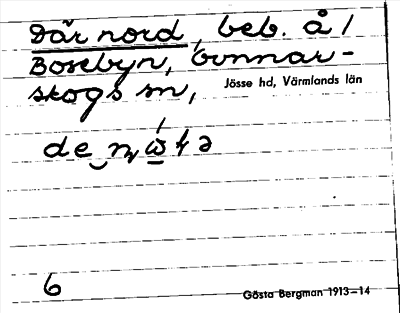 Där nord, beb. å /
Bosebyn, Gunnar-
skogs sn,
Jösse hd, Värmlands län
6
Gösta Bergman 1913—14